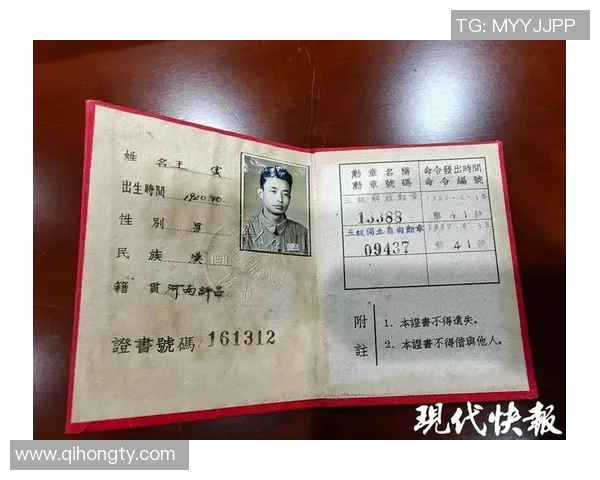 TG: MYYJJPP
姓 名 王 憲
出生時間 1920.10
性 別 男
民 族 漢
籍 貫 河南許昌
證書號碼 161312
勳章名稱 命令發出時間
勳章號碼 命令編號
三級解放勳章 1957.6.18
13388 第41號
三級獨立自由勳章 1957.6.18
09437 第41號
附註
1. 本證書不得遺失。
2. 本證書不得借與他人。
現代快報
www.qihongty.com